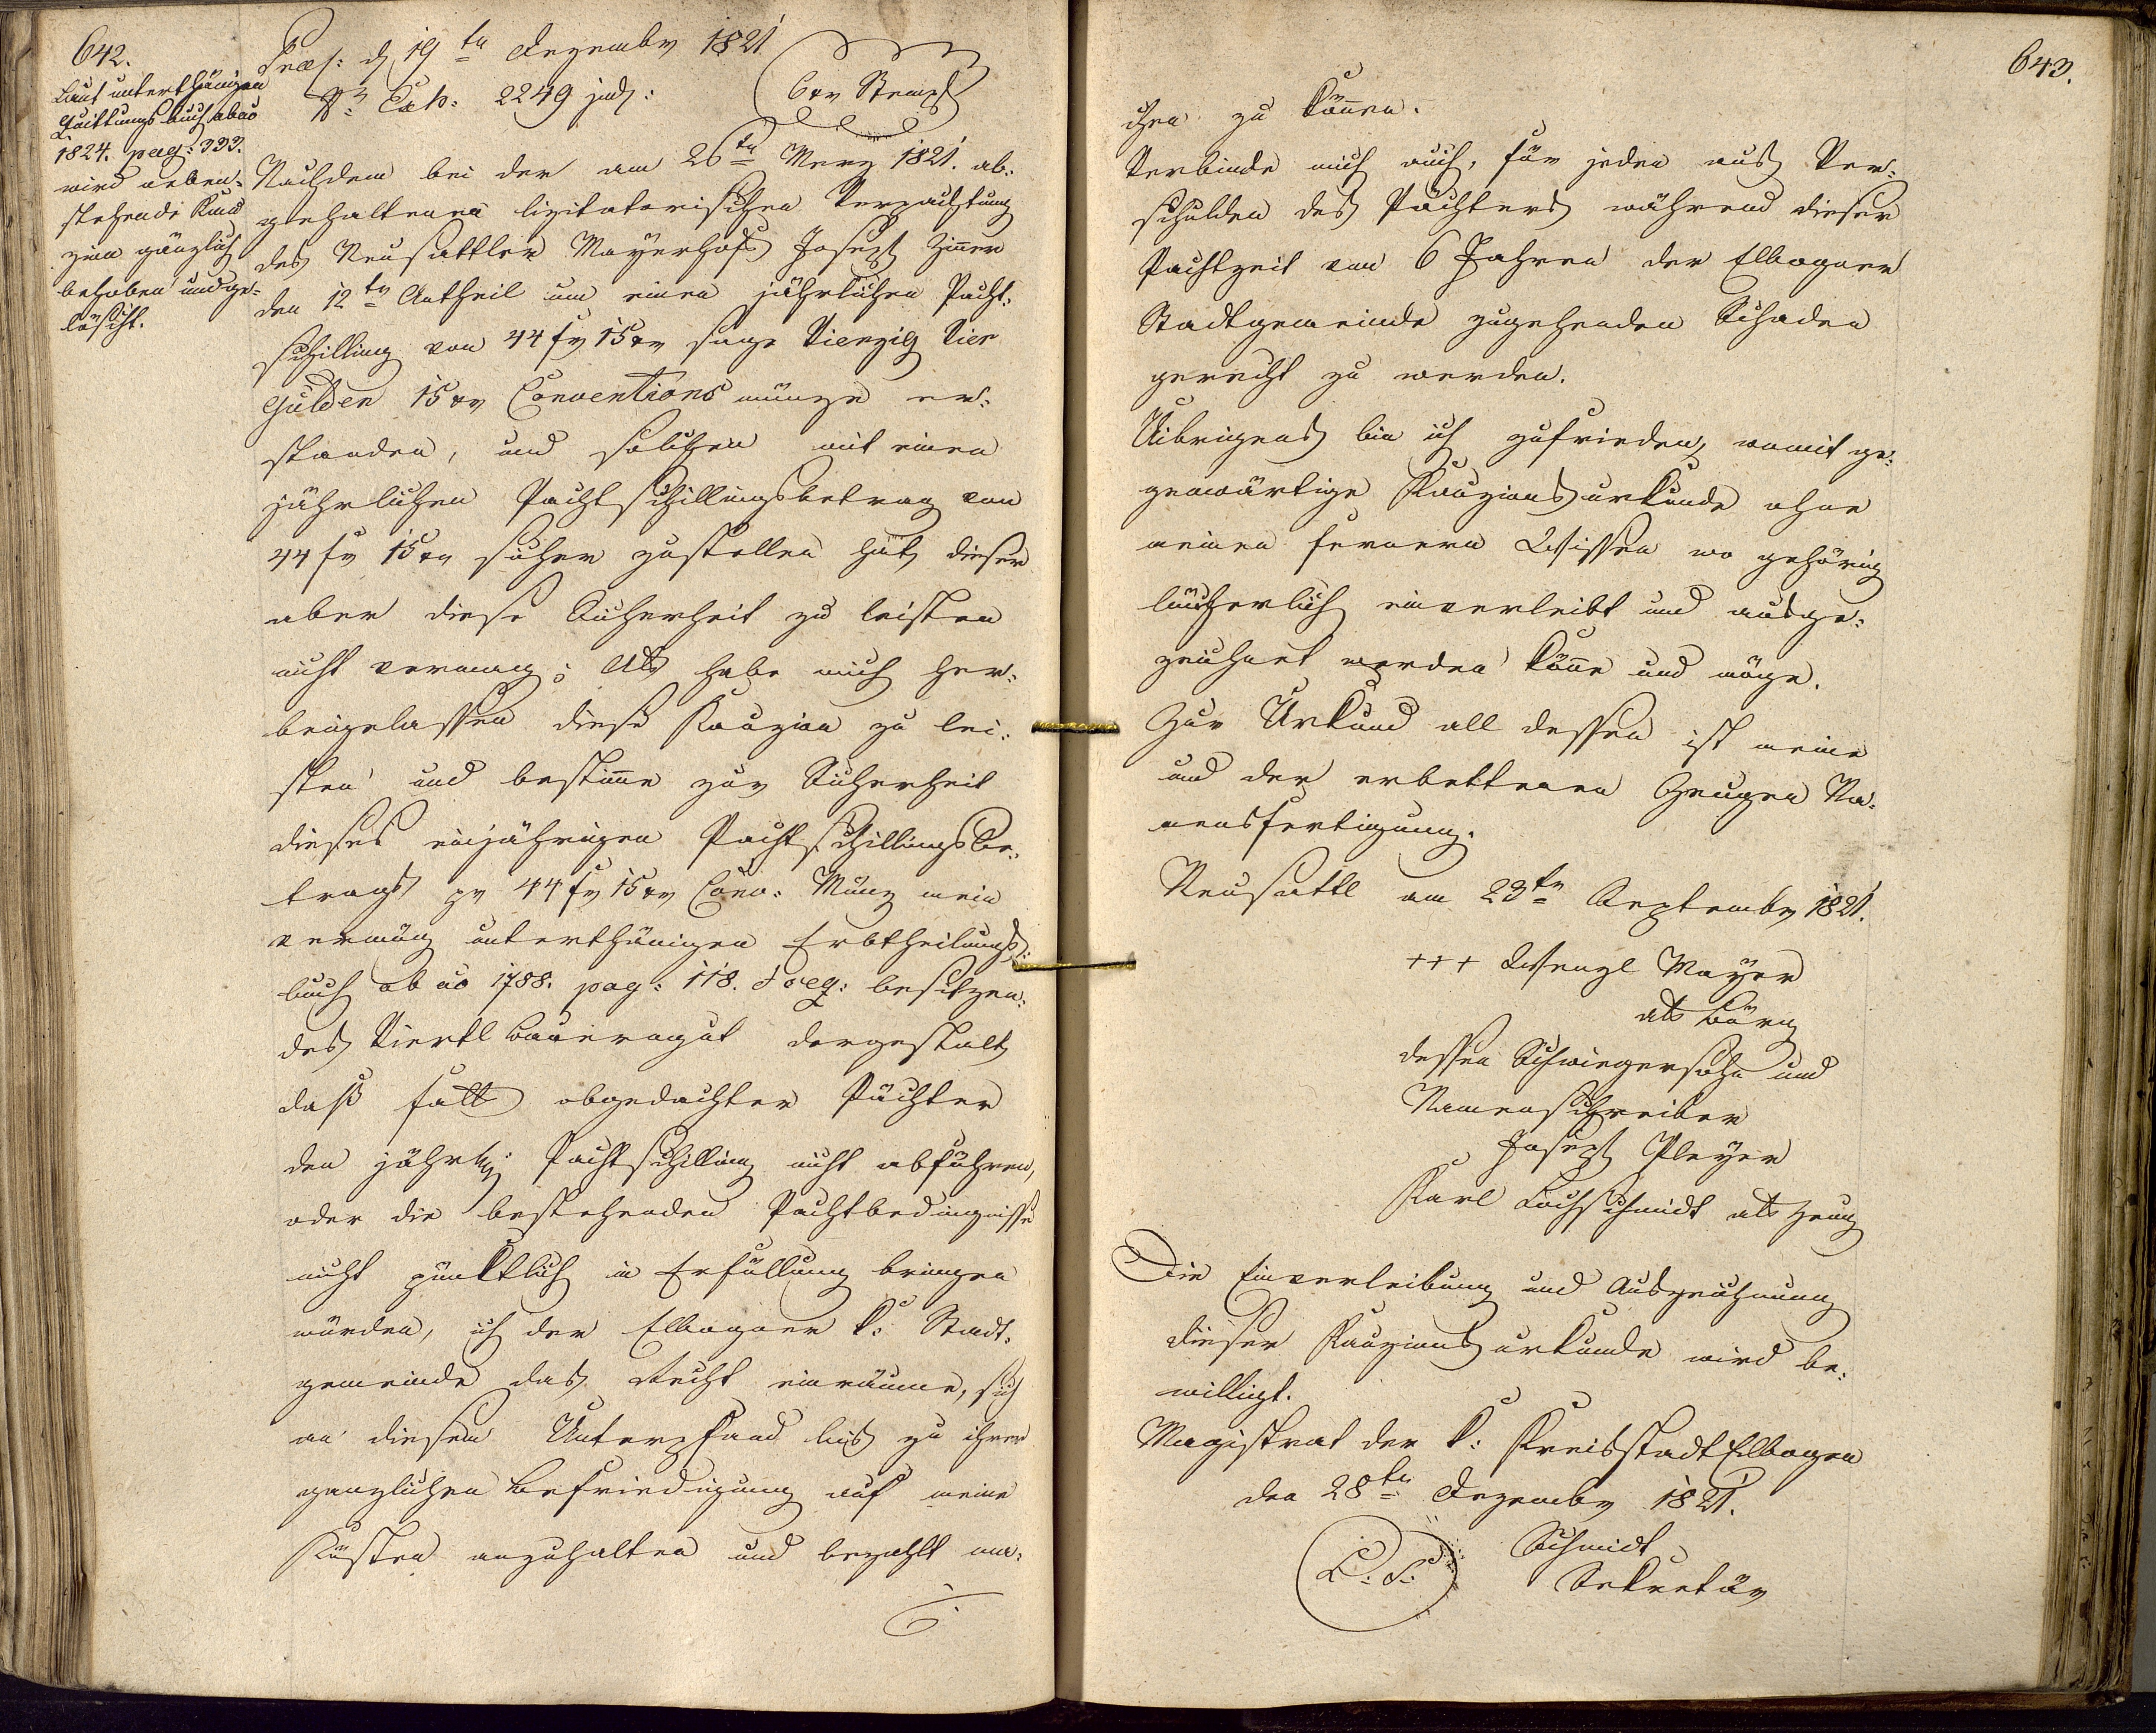 642.
Laut unterthänigen
Quittungsbuch ab ao
1824. pag: 333.
wird neben-
stehende Kau
zion gänzlich
behoben und ge-
löscht.
Praes: d 19ten Dezember 1821
Nro Exh: 2249 jud:
6 xr Stempl
Nachdem bei der am 26ten Merz 1821. ab-
gehaltenen lizitatorischen Verpachtung
des Neusattler Mayerhofs Joseph Zinner
den 12ten Antheil um einen jährlichen Pacht-
schilling von 44 fr 15 xr sage Vierzig Vier
Gulden 15 xr Conventions münze er-
standen, und solchen mit einen
jährlichen Pachtschillingsbetrag von
44 fr 15 xr sicher zustellen hat, dieser
aber diese Sicherheit zu leisten
nicht vermag; Als habe mich her-
beigelassen diese Kauzion zu lei-
sten und bestimme zur Sicherheit
dieses einjährigen Pachtschillingsbe-
trags pr 44 fr 15 xr Conv: Münz mein
vermög unterthänigen Erbtheilungs-
buch ab ao 1788. pag: 118. & seq: besitzen-
des Viertl Bauerngut dergestalt,
daß falls obgedachter Pächter
den jährlich: Pachtschilling nicht abführen,
oder die bestehenden Pachtbedingnisse
nicht pünktlich in Erfüllung bringen
würden, ich der Elbogner k: Stadt-
gemeinde das Recht einräume, sich
an diesem Unterpfand bis zu ihrer
ganzlichen Befriedigung auf meine
Kösten anzuhalten und bezahlt ma-
643.
chen zu können.
Verbinde mich auch, für jeden aus Ver-
schulden des Pächters während dieser
Pachtzeit von 6 Jahren der Elbogner
Stadtgemeinde zugehenden Schaden
gerecht zu werden.
Uibrigens bin ich zufrieden, womit ge-
genwärtige Kauzionsurkunde ohne
meinen fernern Wissen wo gehörig
bücherlich einverleibt und ausge-
zeichnet werden könne und möge.
Zur Urkund all dessen ist meine
und der erbettenen Zeugen Na-
mensfertigung.
Neusattl am 23ten September 1821.
+++ Wenzl Mayer
als Bürg
dessen Schwiegersohn und
Namenschreiber
Joseph Pleyer
Karl Lochschmidt als Zeug
Die Einverleibung und Auszeichnung
dieser Kauzionsurkunde wird be-
willigt.
Magistrat der k: Kreisstadt Elbogen
den 28ten Dezember 1821.
L: S:
Schmidt
Sekretär